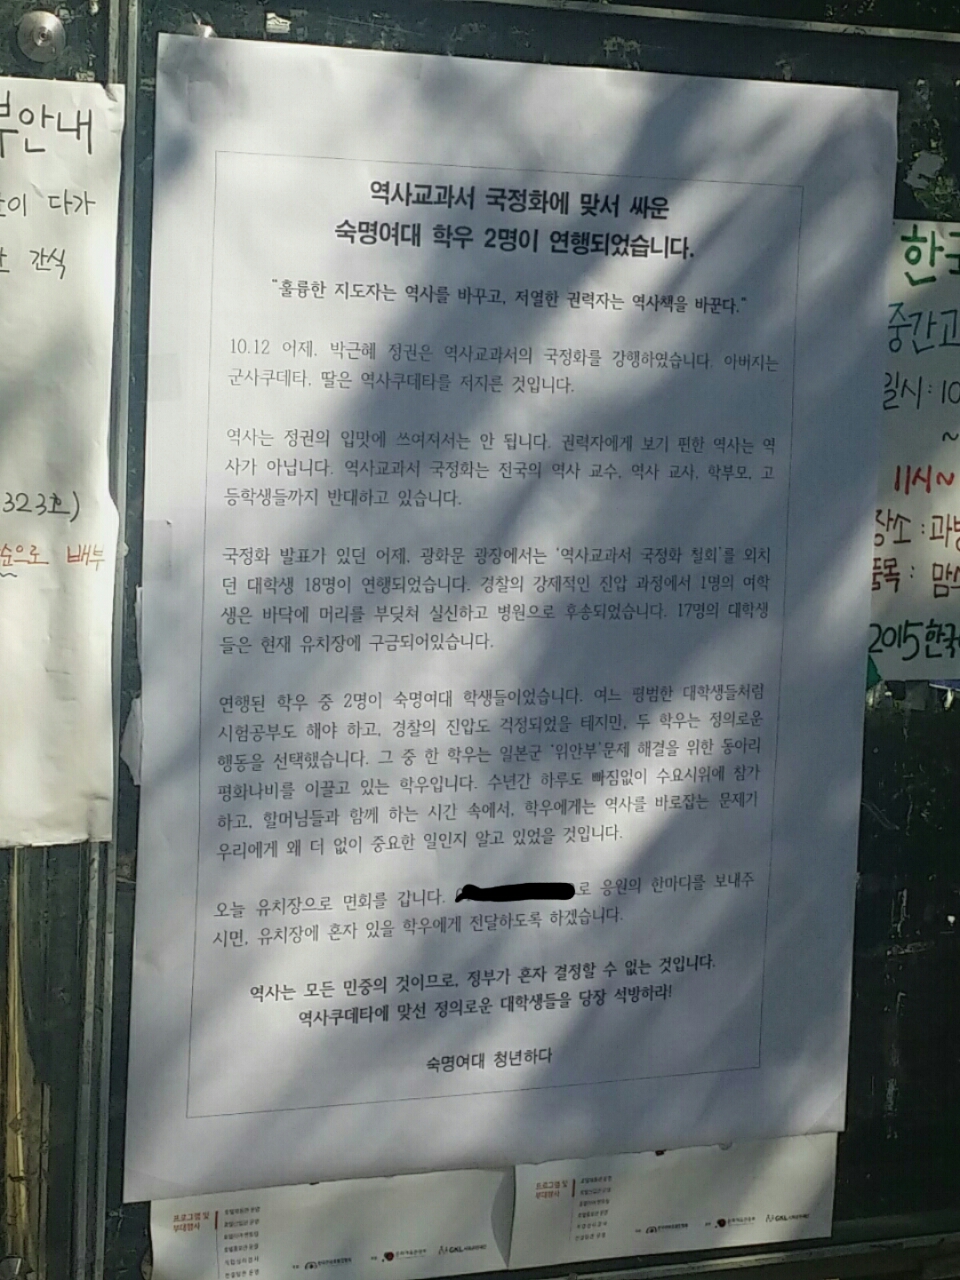 역사교과서 국정화에 맞서 싸운
숙명여대 학우 2명이 연행되었습니다.
"훌륭한 지도자는 역사를 바꾸고, 저열한 권력자는 역사책을 바꾼다."
10.12 어제. 박근혜 정권은 역사교과서의 국정화를 강행하였습니다. 아버지는
군사쿠데타, 딸은 역사쿠데타를 저지른 것입니다.
역사는 정권의 입맛에 쓰여져서는 안 됩니다. 권력자에게 보기 편한 역사는 역
사가 아닙니다. 역사교과서 국정화는 전국의 역사 교수, 역사 교사, 학부모, 고
등학생들까지 반대하고 있습니다.
국정화 발표가 있던 어제, 광화문 광장에서는 '역사교과서 국정화 철회'를 외치
던 대학생 18명이 연행되었습니다. 경찰의 강제적인 진압 과정에서 1명의 여학
생은 바닥에 머리를 부딪쳐 실신하고 병원으로 후송되었습니다. 17명의 대학생
들은 현재 유치장에 구금되어있습니다.
연행된 학우 중 2명이 숙명여대 학생들이었습니다. 여느 평범한 대학생들처럼
시험공부도 해야 하고, 경찰의 진압도 걱정되었을 테지만, 두 학우는 정의로운
행동을 선택했습니다. 그 중 한 학우는 일본군 '위안부'문제 해결을 위한 동아리
평화나비를 이끌고 있는 학우입니다. 수년간 하루도 빠짐없이 수요시위에 참가
하고, 할머님들과 함께 하는 시간 속에서, 학우에게는 역사를 바로잡는 문제가
우리에게 왜 더 없이 중요한 일인지 알고 있었을 것입니다.
오늘 유치장으로 면회를 갑니다. 로 응원의 한마디를 보내주
시면, 유치장에 혼자 있을 학우에게 전달하도록 하겠습니다.
역사는 모든 민중의 것이므로, 정부가 혼자 결정할 수 없는 것입니다.
역사쿠데타에 맞선 정의로운 대학생들을 당장 석방하라!
숙명여대 청년하다
부안내
이 다가
간식
323호)
순으로 배부
한국
중간고
일시: 10
~
11시~
장소: 과방
품목: 맘스
2015한국
프로그램 및
부대행사
프로그램 및
부대행사
GKL
GKL